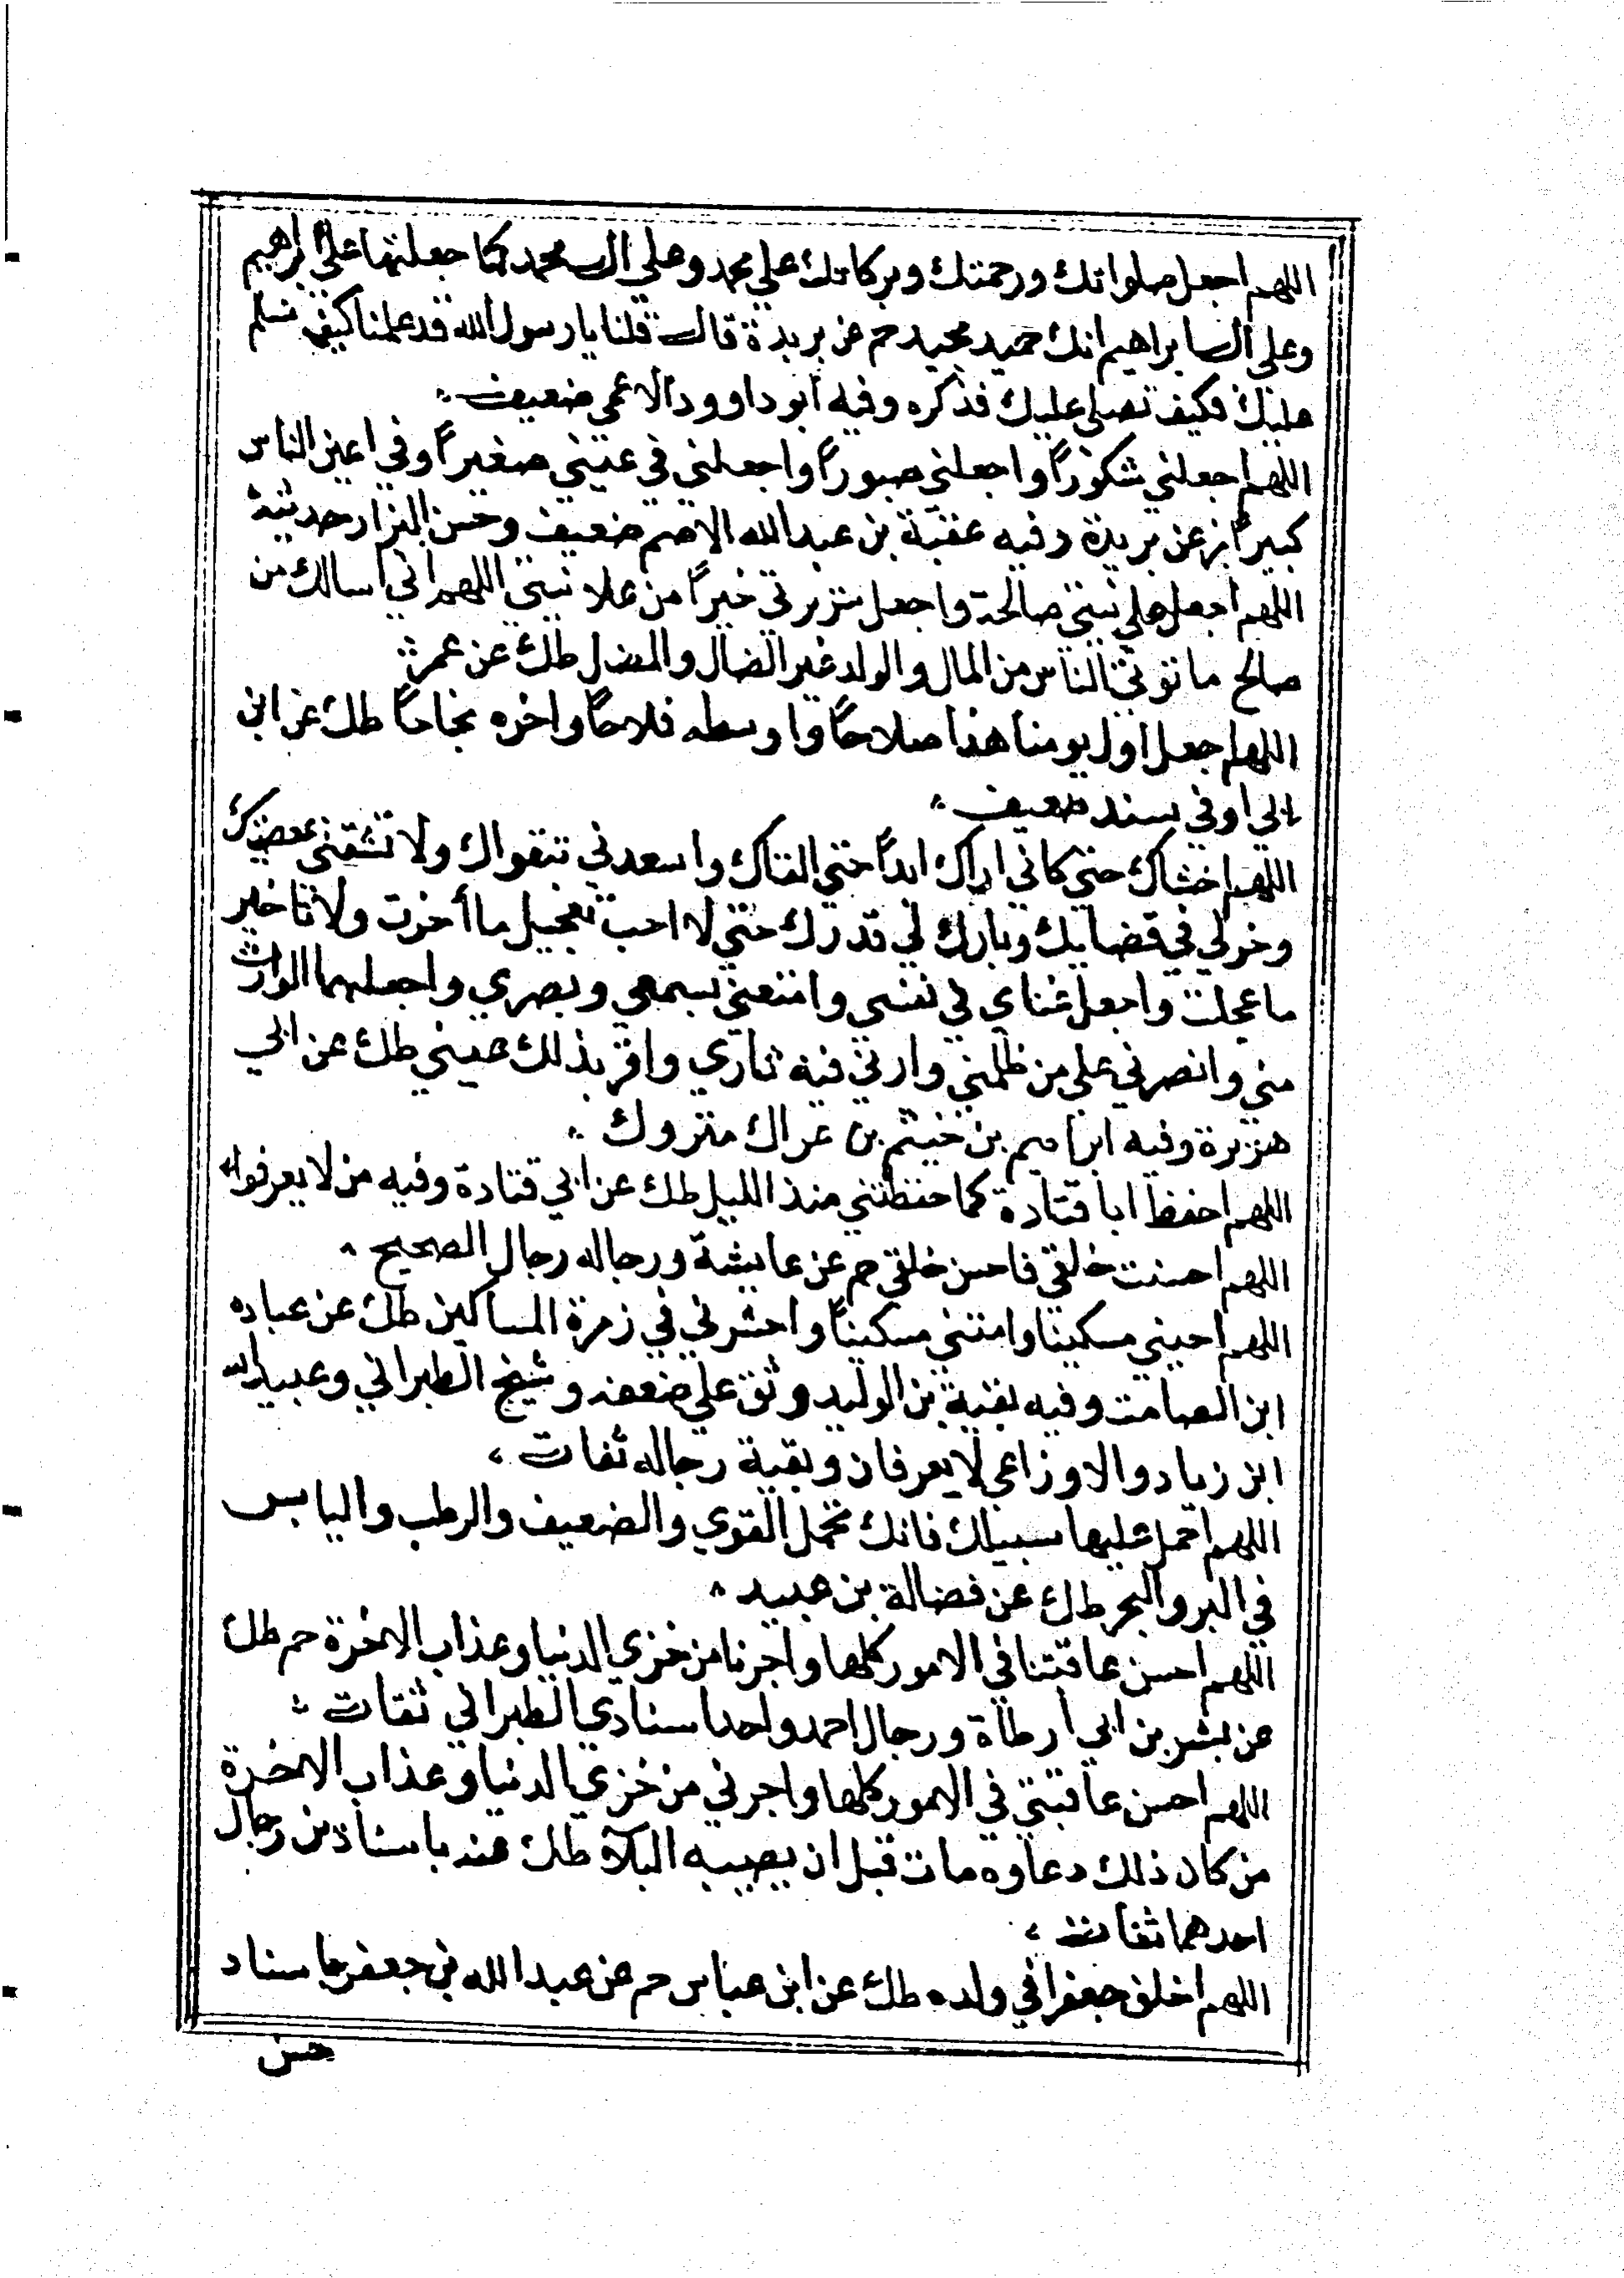 اللهم اجعل صلواتك ورحمتك وبركاتك علي محمد وعلي ال محمد كما جعلتها علي ابراهيم
وعلي ال ابراهيم انك حميد مجيد حم عن بريدة قال قلنا يا رسول الله قد علمنا كيف نسلم
عليك فكيف نصلي عليك فذكره وفيه ابو داوود الاعمي ضعيف
اللهم اجعلني شكوراً واجعلني صبوراً واجعلني في عيني صغيراً وفي اعين الناس
كبيراً بز عن بريدة وفيه عقبة بن عبد الله الاصم ضعيف وحسن البزار حديثه
اللهم اجعل علانيتي صالحة واجعل سريرتي خيراً من علانيتي اللهم اني اسالك من
صالح ما توتي الناس من المال والولد غير الضال والمضل طك عن عمر
اللهم اجعل اول يومنا هذا صلاحاً واوسطه فلاحاً واخره نجاحاً طك عن ابن
ابي اوفي بسند ضعيف
اللهم اخشاك حتي كاني اراك ابداً حتي القاك واسعدني بتقواك ولا تشقني بمعصيتك
وخر لي في قضايك وبارك لي قدرك حتي لا احب تعجيل ما أخرت ولا تاخير
ما عجلت واجعل غناي في نفسي وامتعني بسمعي وبصري واجعلهما الوارث
مني وانصرني علي من ظلمني وارني فيه ثاري واقر بذلك عيني طك عن ابي
هريرة وفيه ابراهيم بن خيثم بن عراك متروك
اللهم احفظ ابا قتادة كما حفظتني منذ الليل طك عن ابي قتادة وفيه من لا يعرفوا
اللهم احسنت خلقي فاحسن خلقي حم عن عايشة ورجاله رجال الصحيح
اللهم احيني مسكينا وامتني مسكيناً واحشرني في زمرة المساكين طك عن عباده
ابن الصامت وفيه بقية بن الوليد وثق علي ضعفه وشيخ الطبراني وعبيد الله
ابن زياد والاوزاعي لا يعرفان وبقية رجاله ثقات
اللهم احمل عليها سبيلك فانك تحمل القوي والضعيف والرطب واليابس
في البر والبحر طك عن فضالة بن عبيد
اللهم احسن عاقبتنا في الامور كلها واجرنا من خزي الدنيا وعذاب الاخرة حم طك
عن بشر بن ابي أرطاة ورجال احمد واحد اسنادي الطبراني ثقات
اللهم احسن عاقبتي في الامور كلها واجرني من خزي الدنيا وعذاب الاخرة
من كان ذلك دعاوه مات قبل ان يصيبه البلاء طك عنه باسنادين رجال
احدهما ثقات
اللهم اخلف جعفرا في ولده طك عن ابن عباس حم عن عبد الله بن جعفر باسناد
حسن